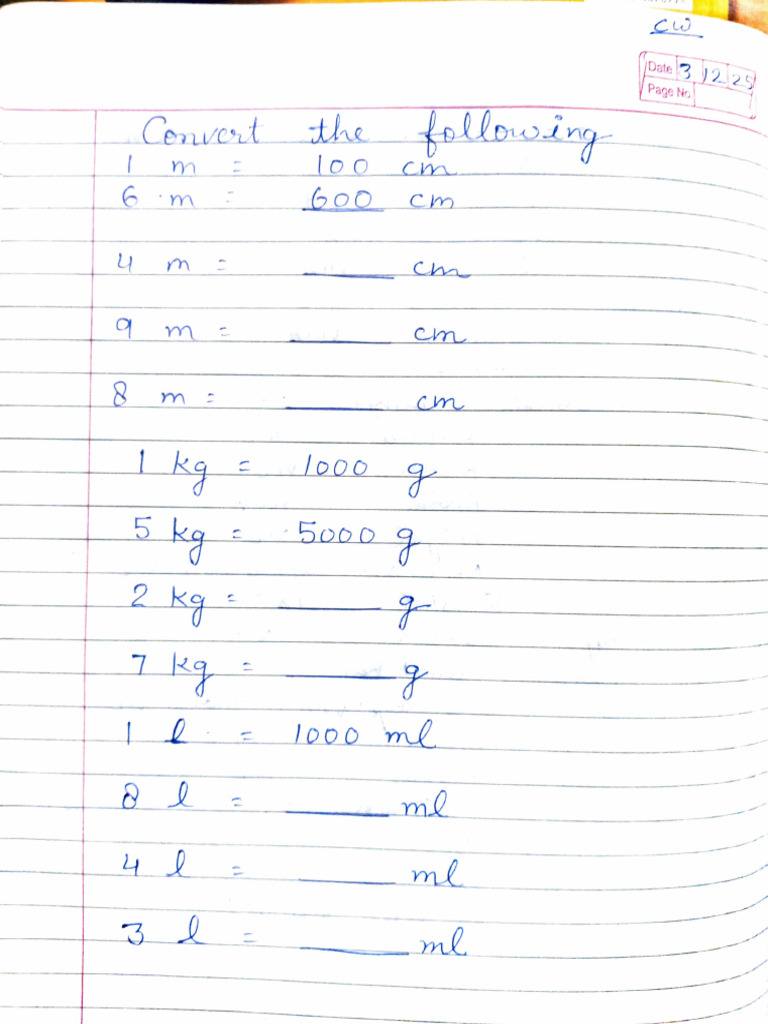 CW
Date 3 12 25
Page No
Convert the following
1 m = 100 cm
6 m = 600 cm
4 m = ____ cm
9 m = ____ cm
8 m = ____ cm
1 kg = 1000 g
5 kg = 5000 g
2 kg = ____ g
7 kg = ____ g
1 l = 1000 ml
8 l = ____ ml
4 l = ____ ml
3 l = ____ ml